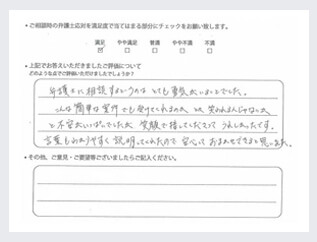 ・ご相談時の弁護士応対を満足度で当てはまる部分にチェックをお願い致します。
満足 やや満足 普通 やや不満 不満
・上記でお答えいただきましたご評価について
どのような点でご評価いただけましたでしょうか?
弁護士に相談するというのは とても敷居が高いことでした。
こんな簡単な案件でも受けてくれるのか とか 笑われるんじゃないか
と不安でいっぱいでしたが 笑顔で接してくださって うれしかったです。
言葉もわかりやすく 説明してくれたので 安心して おまかせできると思いました。
・その他、ご意見・ご要望等ございましたらご記入ください。